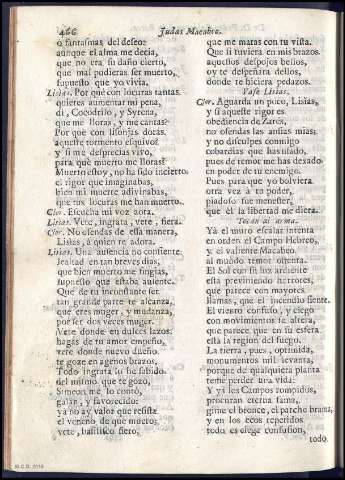 466 Judas Macabeo.
o fantasmas del deseo:
aunque el alma me decia,
que no era su daño cierto,
que mal pudieras ser muerto,
supuesto que yo vivia.
Lisias. Por què con locuras tantas
quieres aumentar mi pena,
di, Cocodrilo, y Syrena,
que me lloras, y me cantas?
Por què con lisonjas doras
aqueste tormento esquivo?
y si me desprecias vivo,
para què muerto me lloras?
Muerto estoy, no ha sido incierto
el rigor que imaginabas,
bien mi muerte adivinabas,
que tus locuras me han muerto.
Clor. Escucha mi voz aora.
Lisias. Vete, ingrata, vete, fiera.
Clor. No ofendas de esta manera,
Lisias, à quien te adora.
Lisias. Una ausencia no consiente
lealtad en tan breves dias,
que bien muerto me fingias,
supuesto que estaba ausente.
Que de tu inconstante ser
tan grande parte te alcanza,
que eres muger, y mudanza,
por ser dos veces muger.
Vete donde en dulces lazos
hagas de tu amor empeño,
vete donde nuevo dueño
te goze en agenos brazos.
Todo ingrata lo he sabido
del mismo que te gozò,
Simeon me lo contò,
galàn, y favorecido:
ya no ay valor que resista
el veneno de que muero:
vete, basilisco fiero,
que me matas con tu vista.
Que si tuviera en mis brazos
aquestos despojos bellos,
oy te despeñara dellos,
donde te hiciera pedazos.
Vase Lisias.
Clor. Aguarda un poco, Lisias,
y si aqueste rigor es
obediencia de Zarès,
no ofendas las ansias mias;
y no disculpes conmigo
cobardias que has usado,
pues de temor me has dexado
en poder de tu enemigo.
Pues para que yo bolviera
otra vez à tu poder,
piadoso fue menester,
que èl la libertad me diera.
Tocan al arma.
Yà el muro escalar intenta
en orden el Campo Hebreo,
y el valiente Macabeo
al mundo temor ostenta.
El Sol con su luz ardiente
està previniendo horrores,
que parece con mayores
llamas, que el incendio siente.
El viento confuso, y ciego
con movimientos se altera,
que parece que en su esfera
està la region del fuego.
La tierra, pues, oprimida,
monumentos mil levanta,
porque de qualquiera planta
teme perder una vida:
Y yà los Campos rompidos,
procuran eterna fama,
gime el bronce, el parche brama,
y en los ecos repetidos
todo es ciega confusion,
todo